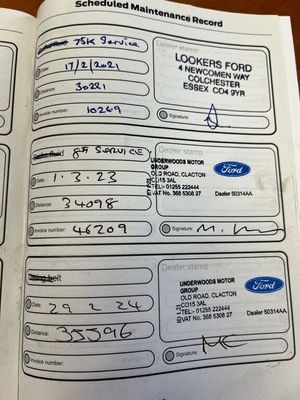 Scheduled Maintenance Record
Brake fluid 75K Service
Date: 17/2/2021
Distance: 30221
Invoice number: 10269
Dealer stamp
LOOKERS FORD
4 NEWCOMEN WAY
COLCHESTER
ESSEX CO4 9YR
Signature:
SERVICE
Date: 1.3.23
Distance: 34098
Invoice number: 46209
Dealer stamp
UNDERWOODS MOTOR
GROUP
OLD ROAD, CLACTON
CO15 3AL
TEL:- 01255 222444
VAT No. 368 5308 27
Ford
Dealer 50314AA
Signature:
Timing belt
Date: 29 2 24
Distance: 35596
Invoice number:
Dealer stamp
UNDERWOODS MOTOR
GROUP
OLD ROAD, CLACTON
CO15 3AL
TEL:- 01255 222444
VAT No. 368 5308 27
Ford
Dealer 50314AA
Signature: